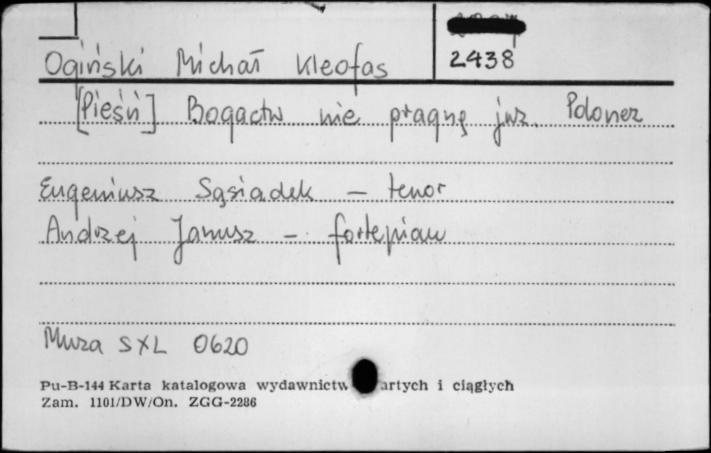 Ogiński Michał Kleofas
2438
[Pieśń] Bogactw nie pragnę już. Polonez
Eugeniusz Sąsiadek – tenor
Andrzej Janusz – fortepian
Muza SXL 0620
Pu-B-144 Karta katalogowa wydawnictw artych i ciągłych
Zam. 1101/DW/On. ZGG-2286